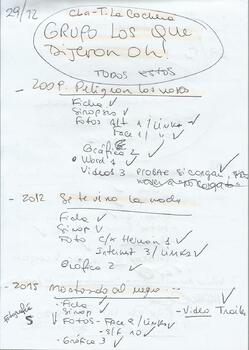 29/12
Cba-Tila Cochera
GRUPO LOS QUE
DIJERON OH!
TODOS ESTOS
- 2009. Peligran los
Ficha ✓
Sinopsis ✓
Fotos Alt 1 / Links ✓
Face 1 / ✓
Gráfica 2 ✓
Word 1 ✓
Videos 3 PROBAR SI cargan
- 2012 Se te vino la noche
Ficha ✓
Sinop ✓
Foto C/x Hernan 1 ✓
Internet 3 / Links ✓
Gráfica 2 ✓
- 2015 Mostrando al negro...
Ficha ✓
Sinop ✓
FOTOS - Face 2 / Links ✓
S/F 10 ✓
- Gráfica 3 ✓
- Video Trailer
5